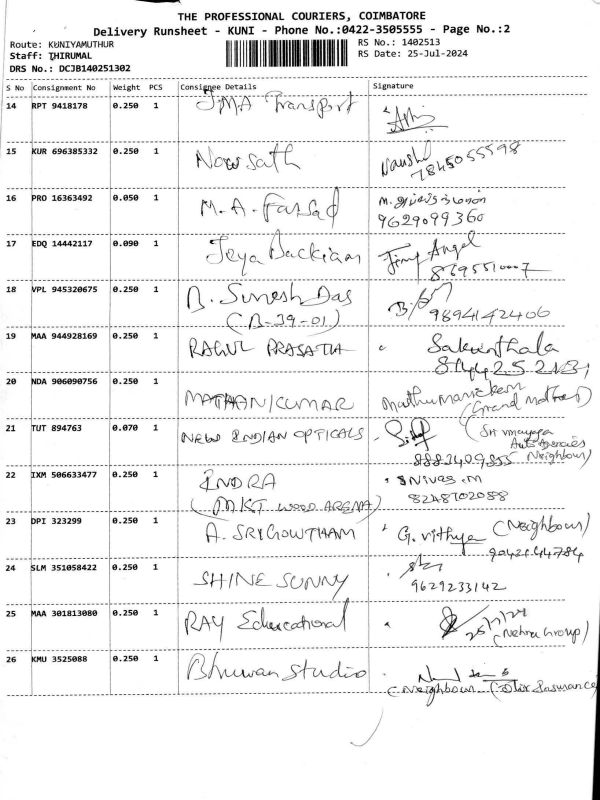 THE PROFESSIONAL COURIERS, COIMBATORE
Delivery Runsheet - KUNI - Phone No.:0422-3505555 - Page No.:2
Route: KUNIYAMUTHUR
RS No.: 1402513
Staff: THIRUMAL
RS Date: 25-Jul-2024
DRS No.: DCJB140251302
S No Consignment No Weight PCS Consignee Details Signature
14 RPT 9418178 0.250 1 JMA Transport
15 KUR 696385332 0.250 1 Nowsath
7845055598
16 PRO 16363492 0.050 1 M.A. Farsad
9629099360
17 EDQ 14442117 0.090 1 Jeya Backiam Angel
8695510007
18 VPL 945320675 0.250 1 B. Suresh Das
(B-39-01) 9894142406
19 MAA 944928169 0.250 1 RAGUL PRASATH Sakunthala
20 NDA 906090756 0.250 1 MATHANKUMAR Muthumanickam
(Grand Mother)
21 TUT 894763 0.070 1 NEW INDIAN OPTICALS (Sri Vinayaga
Auto Agencies
8883409855 Neighbour)
22 IXM 506633477 0.250 1 INDRA SNivas.M
(MKT WOOD ARENA) 8248702088
23 DPI 323299 0.250 1 A. SRIGOWTHAM G. Vithya (Neighbour)
24 SLM 351058422 0.250 1 SHINE SUNNY
9629233142
25 MAA 301813080 0.250 1 RAY Educational 25/7/24
(Nehru Group)
26 KMU 3525088 0.250 1 Bhuwan Studio
(Neighbour Insurance)